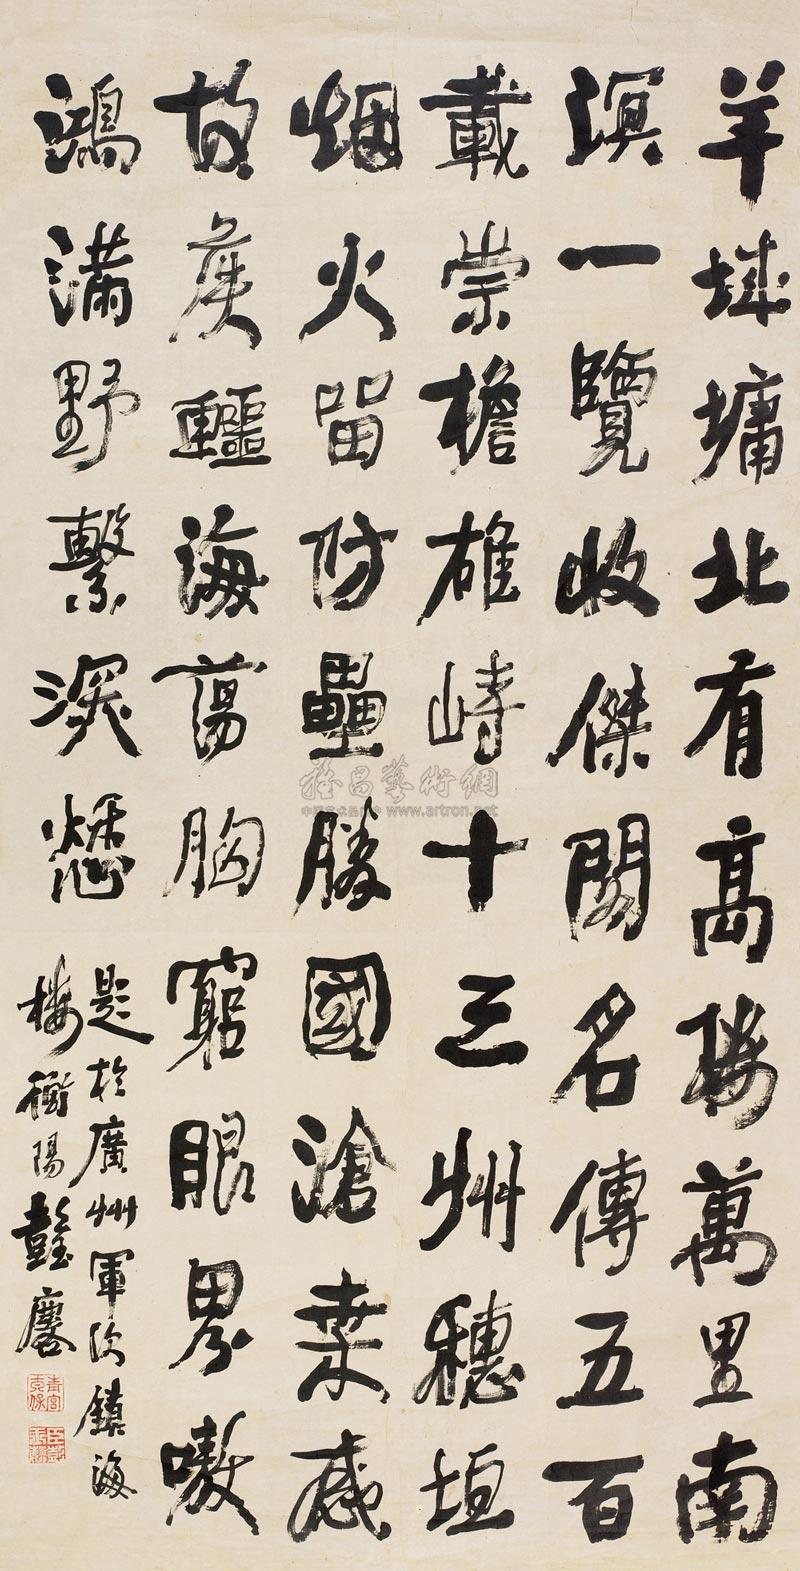 羊城墉北有高樓萬里南
溟一覽收傑閣名傳五百
載崇檐雄峙十三州穗垣
烟火留防壘勝國滄桒感
故侯海蕩胸窮眼界嗷
鴻滿野繫深愁
題於廣州軍次鎮海
樓衡陽彭玉麐
雅昌藝術網
www.artron.net